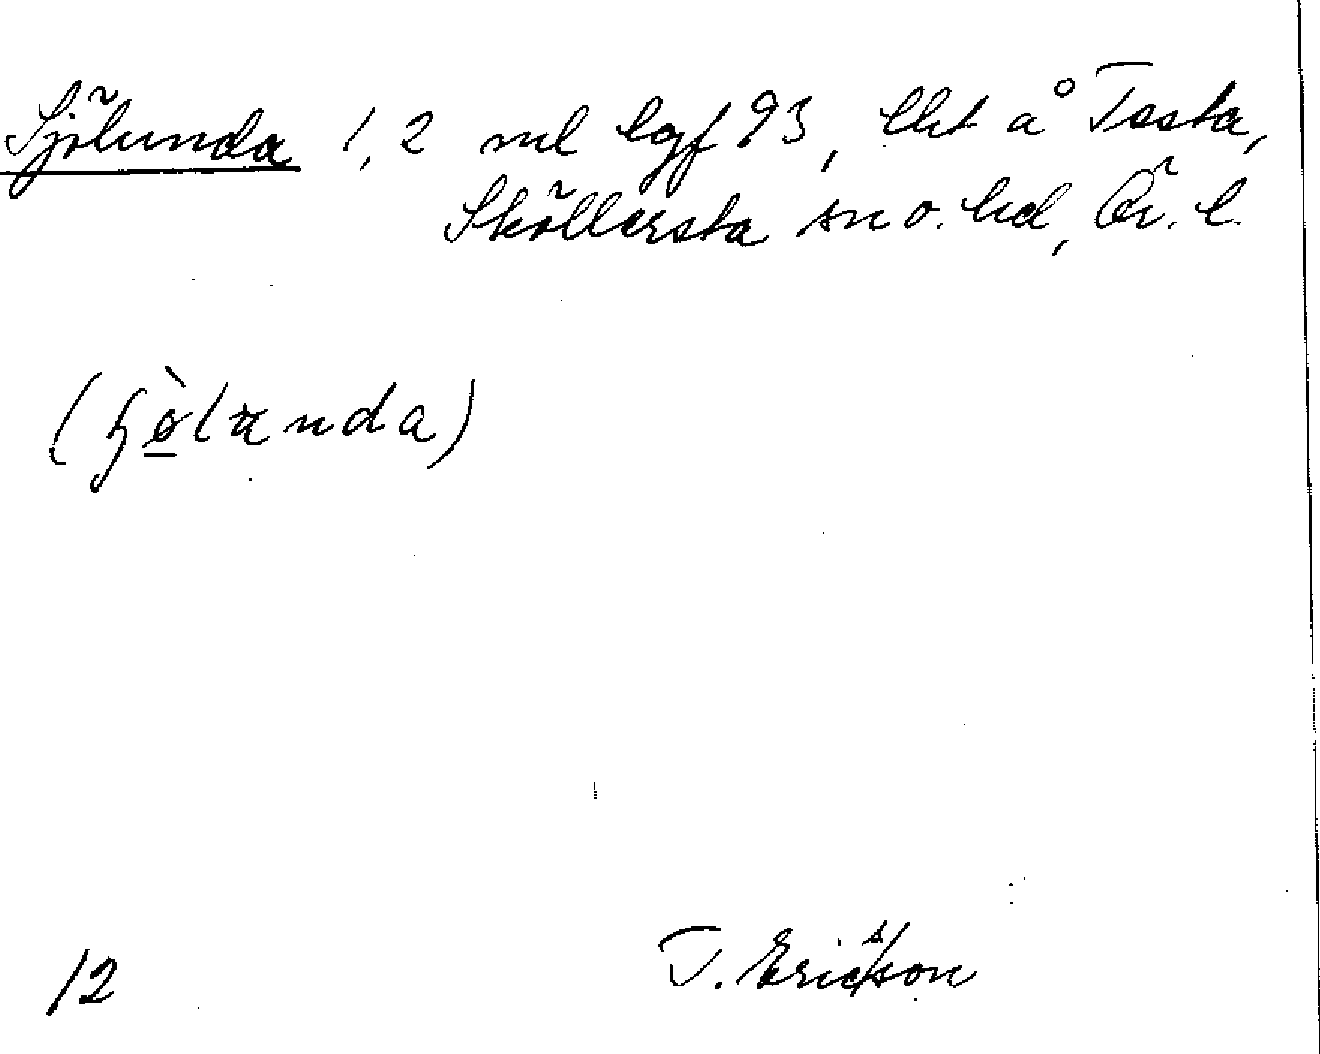 Sjölunda 1,2 ml lgf 93, lht å Tasta,
Sköllersta sn o. hd, Ör. l.
(ɧø̀landa)
12
T. Ericsson